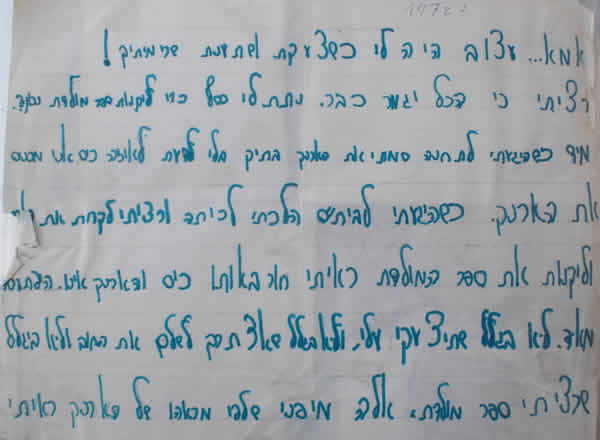 1972
אמא... עצוב היה לי כשצעקת ושתדעת שרימיתיך!
רציתי כי הכל יגמר כבר. נתת לי כסף כדי לקנות ספר מולדת
מיד כשהגעתי לתחנה שמתי את הארנק בתיק בלי לדעת לאיזה כיס אני מכניס
את הארנק. כשהגעתי לביהס הלכתי לכיתה ורציתי לקחת את
ולקנות את ספר המולדת ראיתי חור באותו כיס והארנק איננו.
מאד. לא בגלל שתצעקי עלי, ולא בגלל שאצתרך לשלם את החוב ולא בגלל
שרציתי ספר מולדת. אלה מיפני שלפי מראהו של הארנק ראיתי